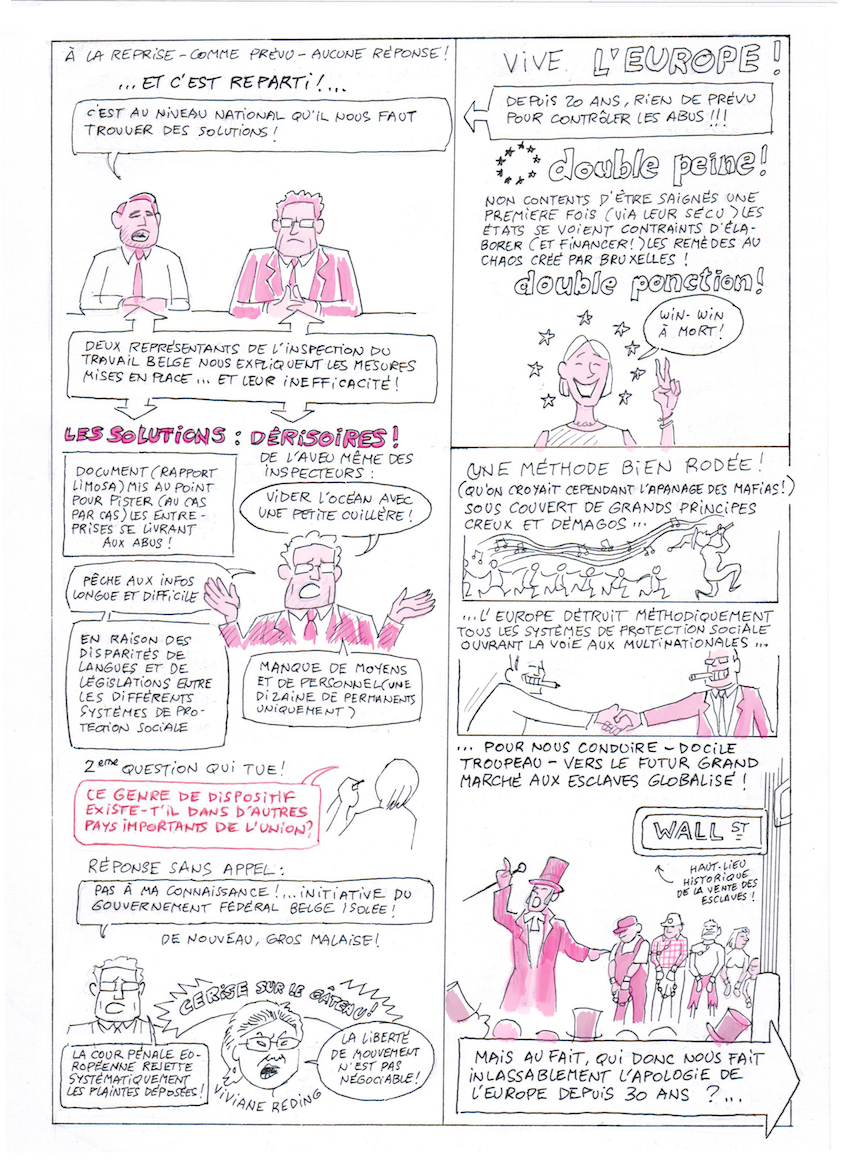 À LA REPRISE - COMME PRÉVU - AUCUNE RÉPONSE !
... ET C'EST REPARTI !...
C'EST AU NIVEAU NATIONAL QU'IL NOUS FAUT
TROUVER DES SOLUTIONS !
DEUX REPRÉSENTANTS DE L'INSPECTION DU
TRAVAIL BELGE NOUS EXPLIQUENT LES MESURES
MISES EN PLACE ... ET LEUR INEFFICACITÉ !
LES SOLUTIONS : DÉRISOIRES !
DE L'AVEU MÊME DES
INSPECTEURS :
DOCUMENT (RAPPORT
LIMOSA) MIS AU POINT
POUR PISTER (AU CAS
PAR CAS) LES ENTRE-
PRISES SE LIVRANT
AUX ABUS !
VIDER L'OCÉAN AVEC
UNE PETITE CUILLÈRE !
PÊCHE AUX INFOS
LONGUE ET DIFFICILE
EN RAISON DES
DISPARITÉS DE
LANGUES ET DE
LÉGISLATIONS ENTRE
LES DIFFÉRENTS
SYSTÈMES DE PRO-
TECTION SOCIALE
MANQUE DE MOYENS
ET DE PERSONNEL (UNE
DIZAINE DE PERMANENTS
UNIQUEMENT)
2ème QUESTION QUI TUE !
CE GENRE DE DISPOSITIF
EXISTE-T'IL DANS D'AUTRES
PAYS IMPORTANTS DE L'UNION ?
RÉPONSE SANS APPEL :
PAS À MA CONNAISSANCE !... INITIATIVE DU
GOUVERNEMENT FÉDÉRAL BELGE ISOLÉE !
DE NOUVEAU, GROS MALAISE !
CERISE SUR LE GÂTEAU !
LA COUR PÉNALE EU-
ROPÉENNE REJETTE
SYSTÉMATIQUEMENT
LES PLAINTES DÉPOSÉES !
VIVIANE REDING
LA LIBERTÉ
DE MOUVEMENT
N'EST PAS
NÉGOCIABLE !
VIVE L'EUROPE !
DEPUIS 20 ANS, RIEN DE PRÉVU
POUR CONTRÔLER LES ABUS !!!
double peine !
NON CONTENTS D'ÊTRE SAIGNÉS UNE
PREMIÈRE FOIS (VIA LEUR SÉCU) LES
ÉTATS SE VOIENT CONTRAINTS D'ÉLA-
BORER (ET FINANCER !) LES REMÈDES AU
CHAOS CRÉÉ PAR BRUXELLES !
double ponction !
WIN-WIN
À MORT !
UNE MÉTHODE BIEN RODÉE !
(QU'ON CROYAIT CEPENDANT L'APANAGE DES MAFIAS !)
SOUS COUVERT DE GRANDS PRINCIPES
CREUX ET DÉMAGOS ...
... L'EUROPE DÉTRUIT MÉTHODIQUEMENT
TOUS LES SYSTÈMES DE PROTECTION SOCIALE
OUVRANT LA VOIE AUX MULTINATIONALES ...
... POUR NOUS CONDUIRE - DOCILE
TROUPEAU - VERS LE FUTUR GRAND
MARCHÉ AUX ESCLAVES GLOBALISÉ !
WALL ST
HAUT-LIEU
HISTORIQUE
DE LA VENTE DES
ESCLAVES !
MAIS AU FAIT, QUI DONC NOUS FAIT
INLASSABLEMENT L'APOLOGIE DE
L'EUROPE DEPUIS 30 ANS ?...